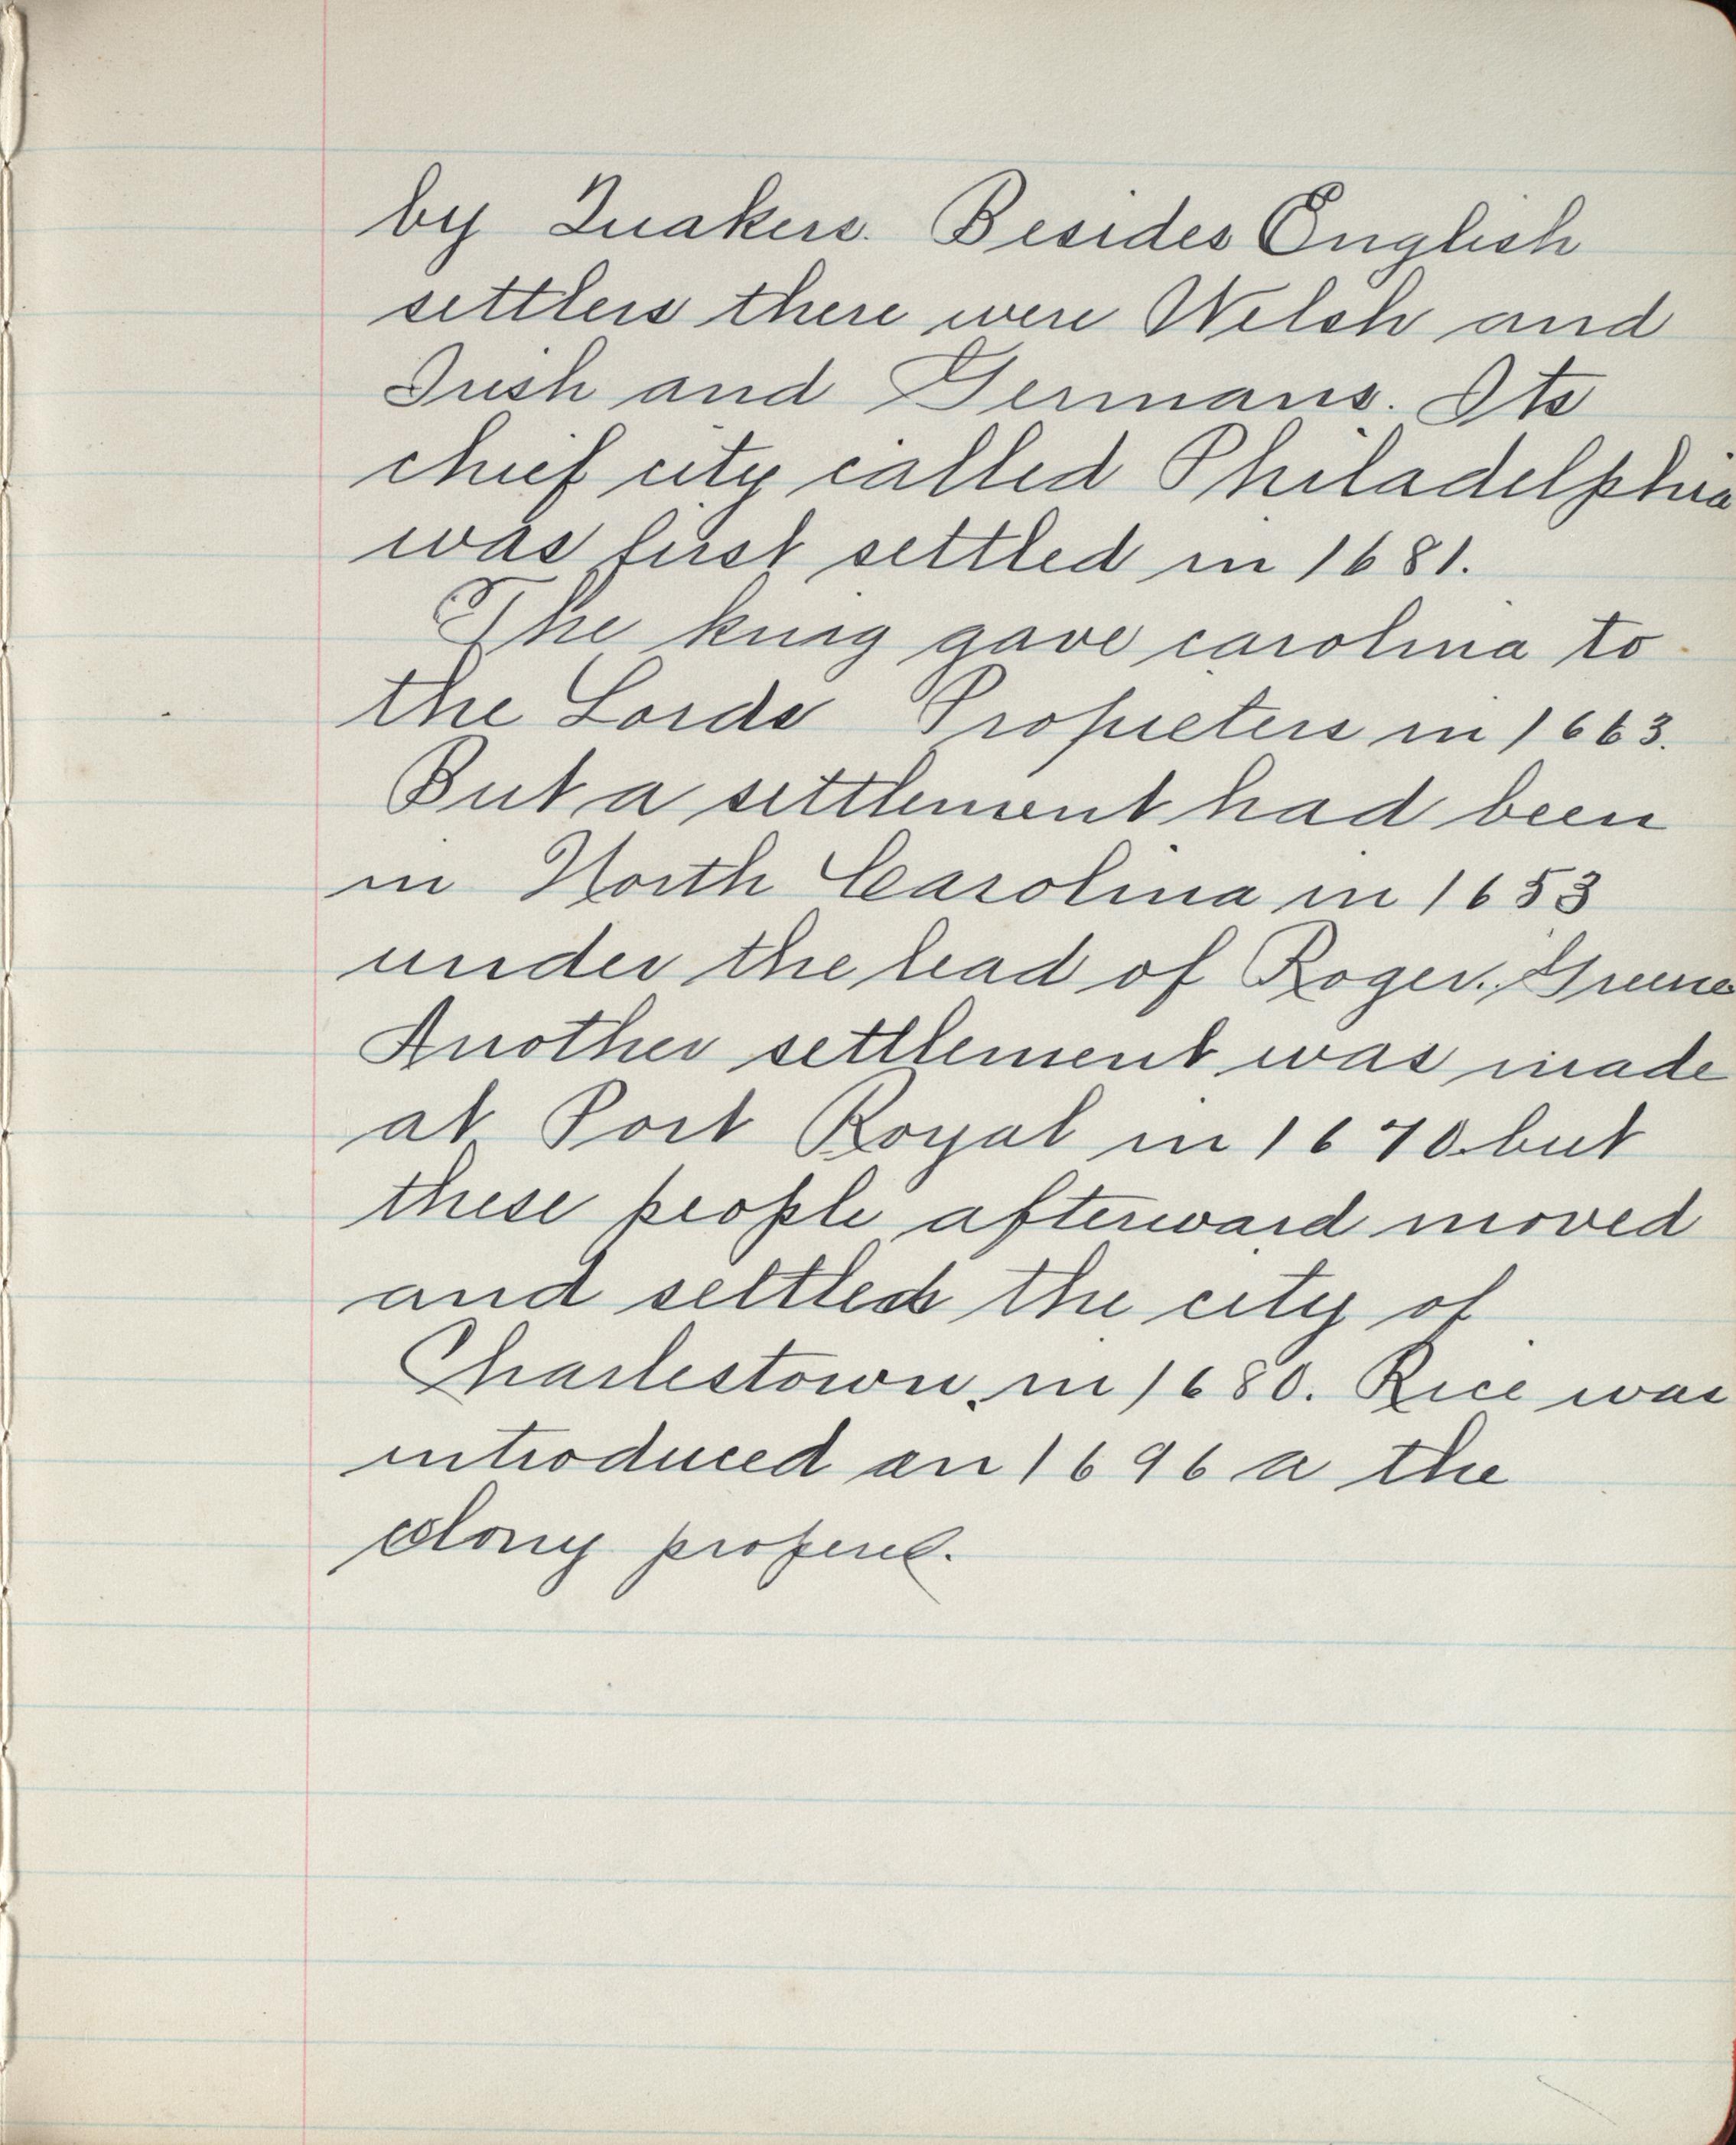 by Quakers. Besides English
settlers there were Welsh and
Irish and Germans. Its
chief city called Philadelphia
was first settled in 1681.
The king gave carolina to
the Lords Propieters in 1663.
But a settlement had been
in North Carolina in 1653
under the lead of Roger. Greene
Another settlement was made
at Port Royal in 1670. but
these people afterward moved
and settled the city of
Charlestown, in 1680. Rice was
introduced an 1696 a the
colony